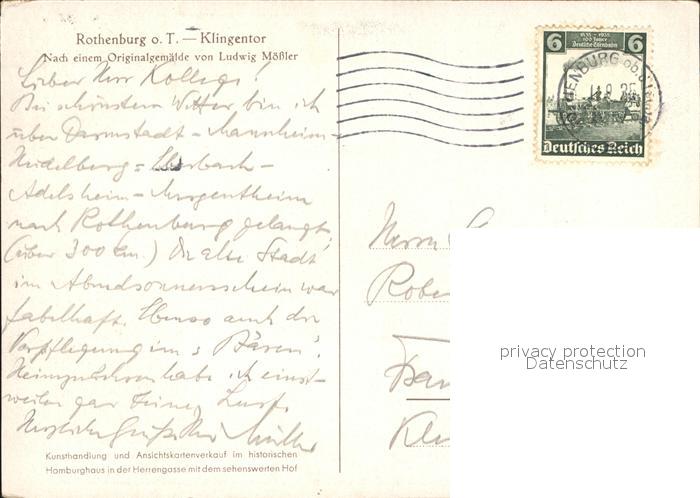 Rothenburg o. T. — Klingentor
Nach einem Originalgemälde von Ludwig Mößler
Lieber Herr Kollege!
Bei schönstem Wetter bin ich
über Darmstadt - Mannheim -
Heidelberg - Eberbach -
Adelsheim - Mergentheim
nach Rothenburg gelangt
(über 300 km.) Die alte Stadt
im Abendsonnenschein war
fabelhaft. Ebenso auch die
Verpflegung im "Bären".
habe ich einst-
weilen gar keine Lust.
Herzliche Grüße Ihr Müller
Kunsthandlung und Ansichtskartenverkauf im historischen
Homburghaus in der Herrengasse mit dem sehenswerten Hof
6 1835 - 1935 6
100 Jahre
Deutsche Eisenbahn
Deutsches Reich
Herrn
Robe
Klei
privacy protection
Datenschutz